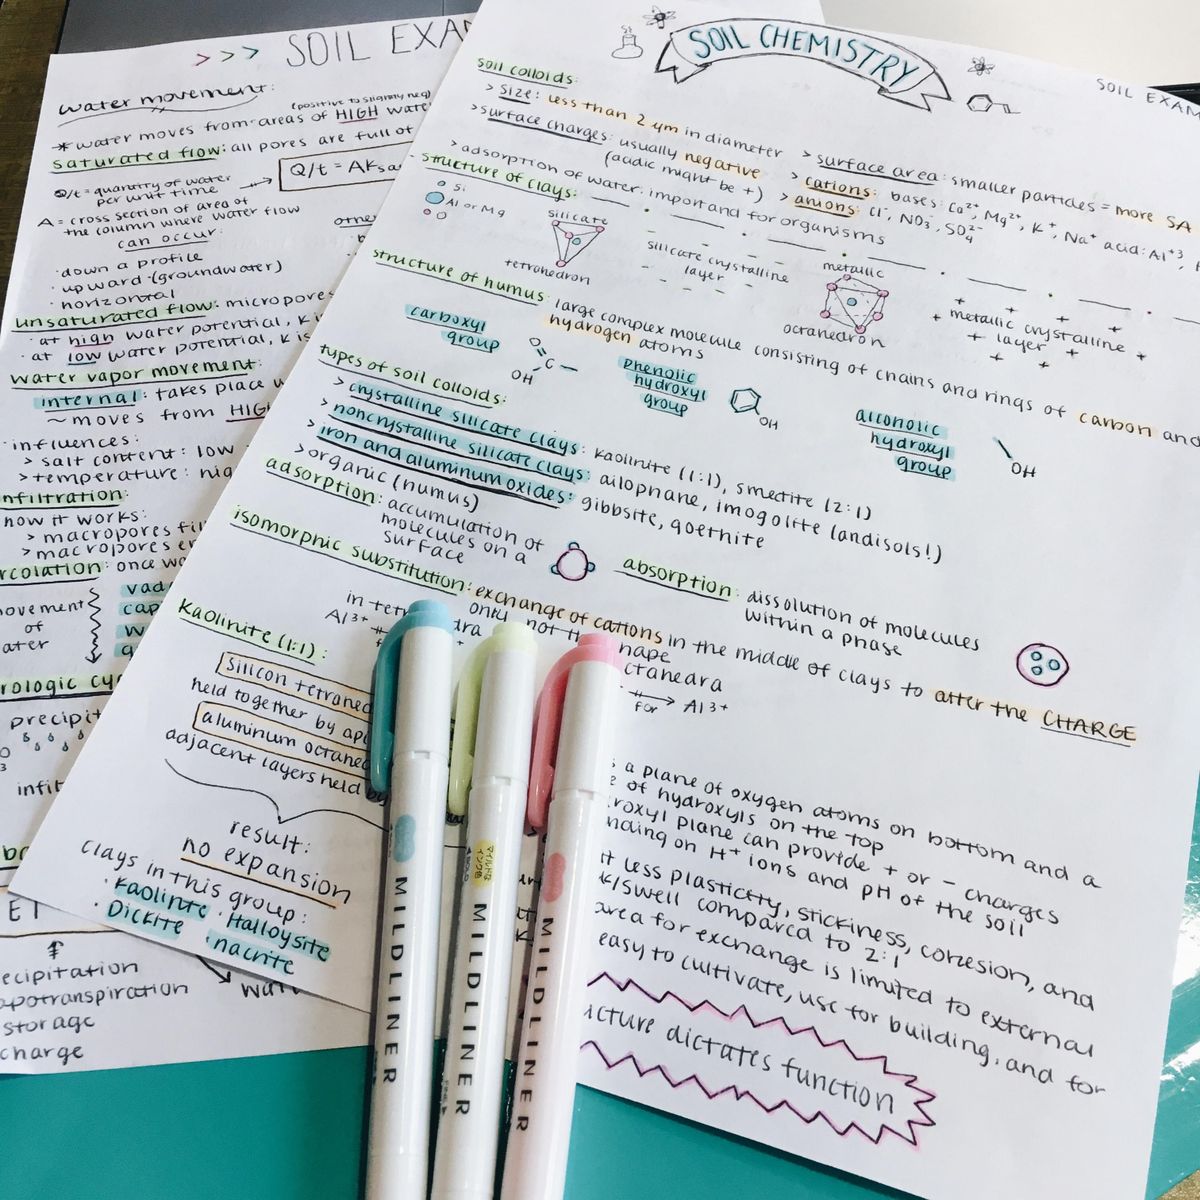 >>> SOIL EXA
water movement:
(positive to slightly neg)
* water moves from areas of HIGH wate
saturated flow: all pores are full of
Q/t = quantity of water
per unit time
Q/t = AKsa
A = cross section of area of
the column where water flow
can occur:
othe
· down a profile
· upward (groundwater)
· horizontal
unsaturated flow: micropores
· at high water potential, K i
· at low water potential, K is
water vapor movement:
internal: takes place w
~ moves from HIGH
· influences:
> salt content: low
> temperature: hig
nfiltration:
how it works:
> macropores fil
> macropores e
rcolation: once wa
ovement
of
ater
vad
cap
w
g
rologic cyc
precipit
infi
ET
ecipitation
apotranspiration
storage
charge
wat
SOIL CHEMISTRY
SOIL EXAM
soil colloids:
> size: less than 2 μm in diameter
> surface charges: usually negative
(acidic might be +)
> adsorption of water: important for organisms
> surface area: smaller particles = more SA
> cations: bases: Ca2+, Mg2+, K+, Na+ acid: Al+3,
> anions: Cl-, NO3-, SO4 2-
structure of clays:
Si
Al or Mg
O
silicate
tetrahedron
silicate crystalline
layer
metallic
octanedron
metallic crystalline
layer
structure of humus: large complex molecule consisting of chains and rings of carbon and
hydrogen atoms
carboxyl
group
O
C
OH
phenolic
hydroxyl
group
OH
alcoholic
hydroxyl
group
OH
types of soil colloids:
> crystalline silicate clays: kaolinite (1:1), smectite (2:1)
> noncrystalline silicate clays: allophane, imogolite (andisols!)
> iron and aluminum oxides: gibbsite, goethite
> organic (humus)
adsorption: accumulation of
molecules on a
surface
absorption: dissolution of molecules
within a phase
isomorphic substitution: exchange of cations in the middle of clays to alter the CHARGE
only, not th hape
in tet dra
Al3+
ctahedra
for Al3+
kaolinite (1:1):
silicon tetrahed
held together by ap
aluminum octahed
adjacent layers held by
result:
no expansion
clays in this group:
· Kaolinte · Halloysite
· Dickite · nacrite
a plane of oxygen atoms on bottom and a
e of hydroxyls on the top
roxyl plane can provide + or - charges
nding on H+ ions and pH of the soil
t less plasticity, stickiness, cohesion, and
k/swell compared to 2:1
area for exchange is limited to external
easy to cultivate, use for building, and for
ucture dictates function
MILDLINER
MILDLINER
MILDLINER